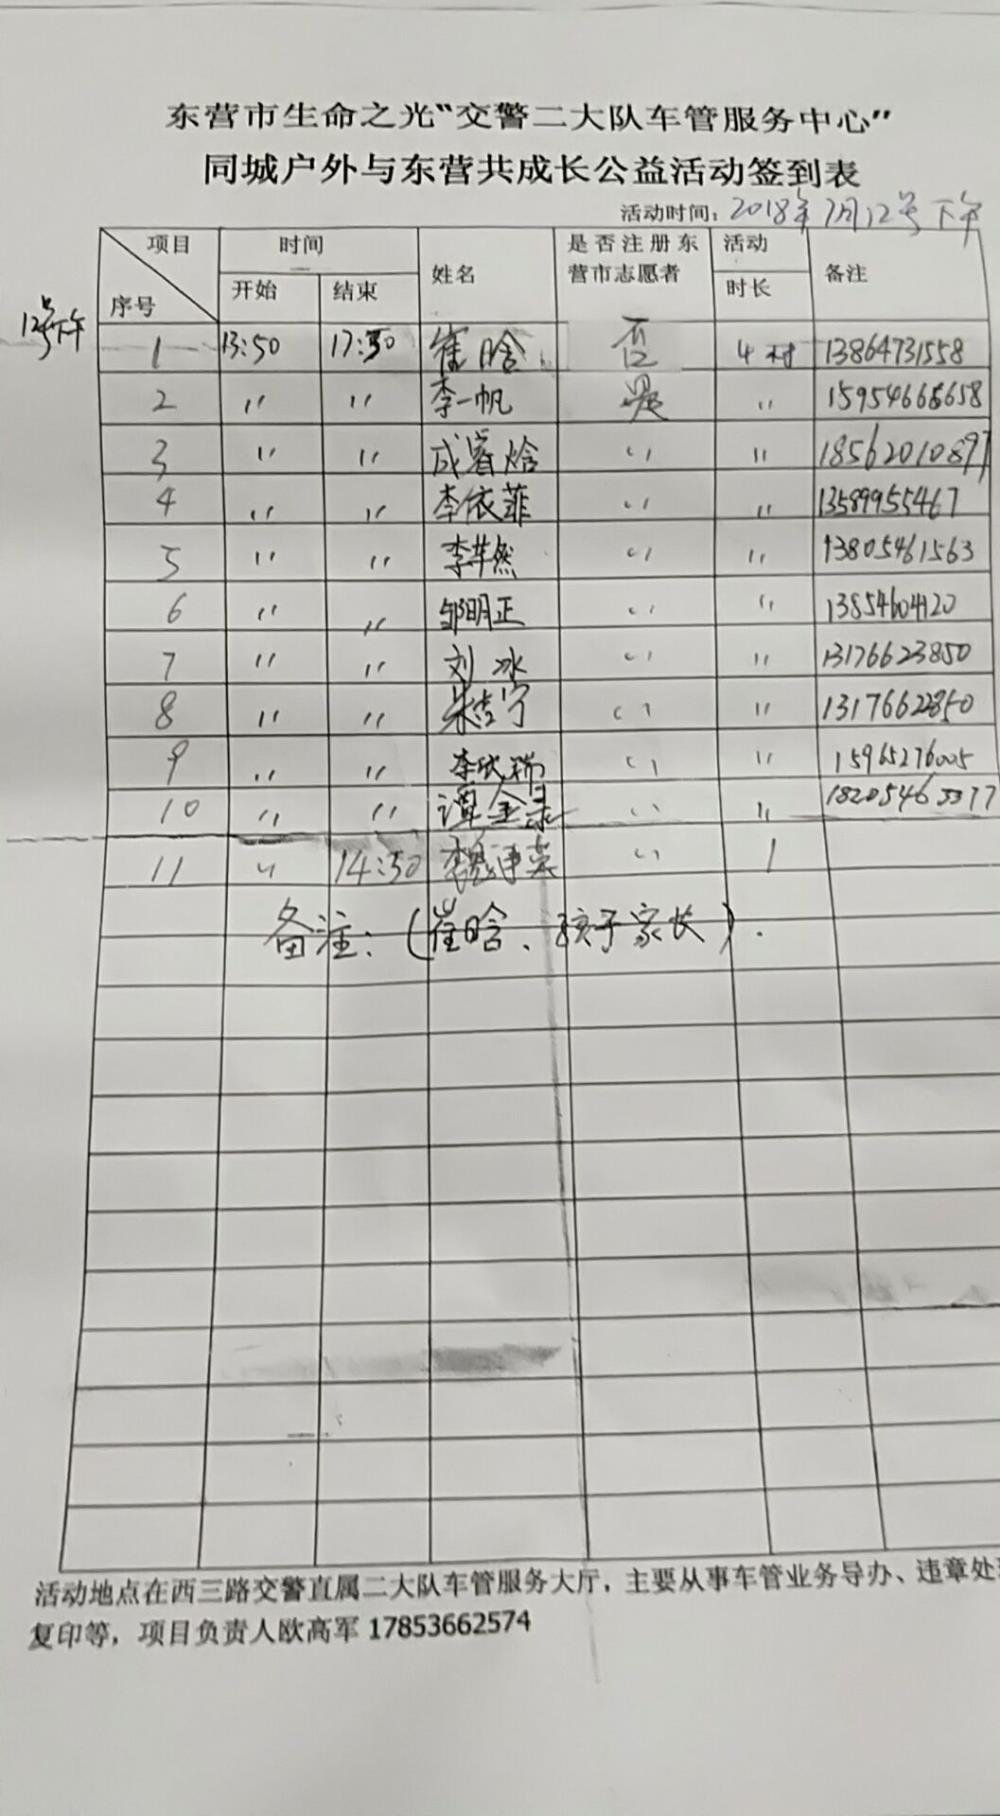 东营市生命之光“交警二大队车管服务中心”
同城户外与东营共成长公益活动签到表
活动时间：2018年7月12号下午
项目 时间 姓名 是否注册东营市志愿者 活动时长 备注
序号 开始 结束
12号下午
1 13:50 17:50 崔晗 否 4时 13864731558
2 〃 〃 李一帆 是 〃 15954668658
3 〃 〃 成睿焓 〃 〃 18562010897
4 〃 〃 李依菲 〃 〃 13589955467
5 〃 〃 李芊然 〃 〃 13805461563
6 〃 〃 邹明正 〃 〃 13854604120
7 〃 〃 刘冰 〃 〃 13176623850
8 〃 〃 朱吉宁 〃 〃 13176622850
9 〃 〃 李 瑞 〃 〃 15965276005
10 〃 〃 谭金录 〃 〃
11 〃 14:50 〃 1
备注：（崔晗、孩子家长）.
活动地点在西三路交警直属二大队车管服务大厅，主要从事车管业务导办、违章处
复印等，项目负责人欧高军 17853662574